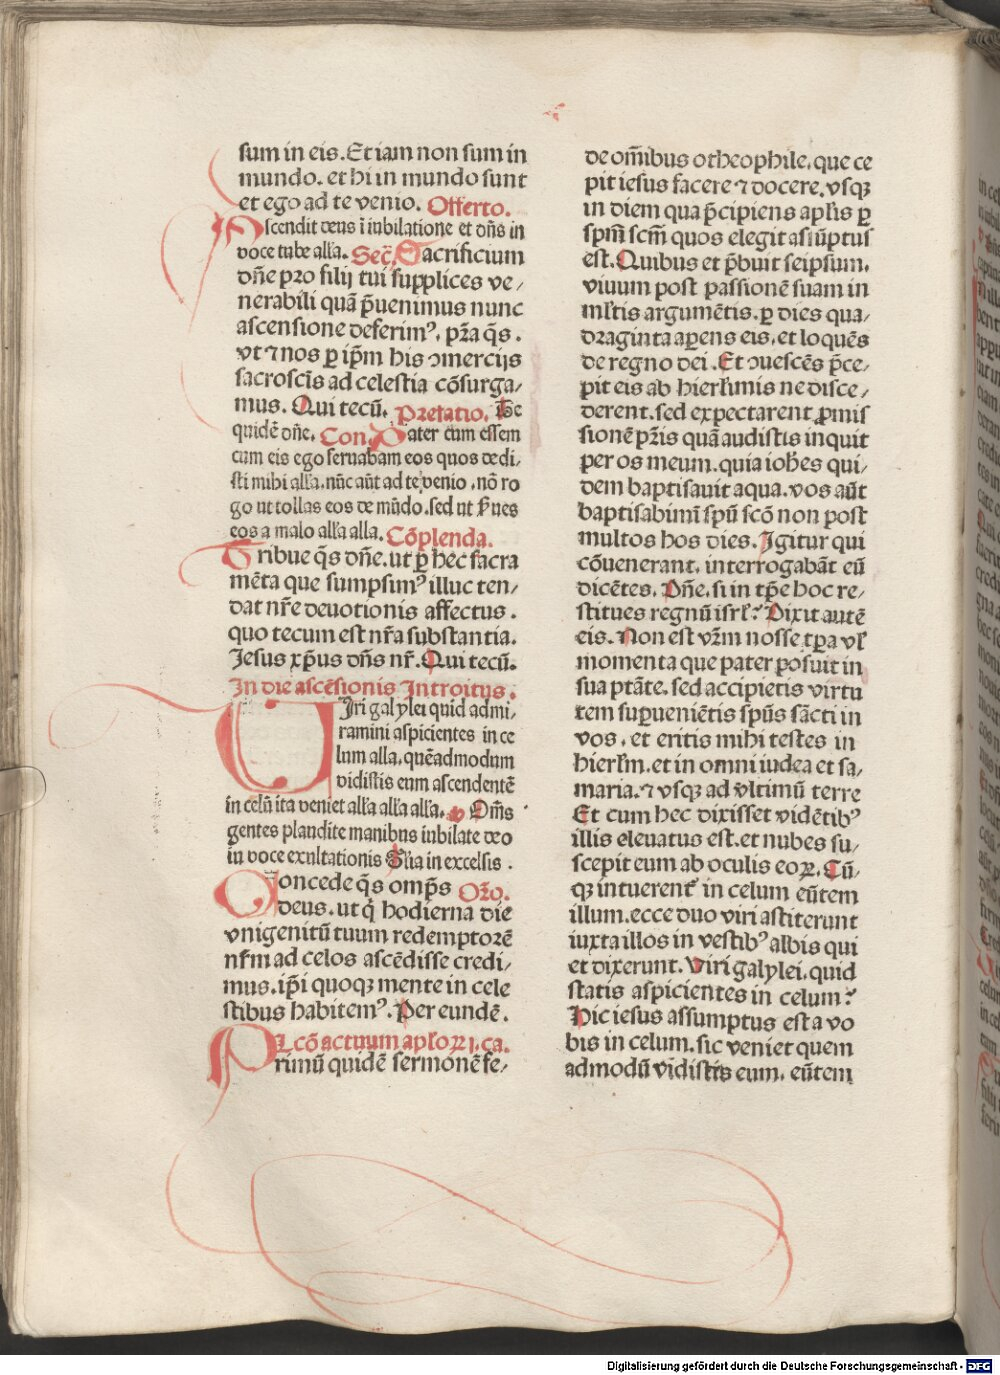 sum in eis. Et iam non sum in
mundo. et hi in mundo sunt
et ego ad te venio. Offerto.
Ascendit deus ĩ iubilatione et dñs in
voce tube alla. Sec̃. Sacrificium
dñe pro filij tui supplices ve⸗
nerabili quã p̃uenimus nunc
ascensione deferimꝰ. pr̃a q̃s.
vt ⁊ nos ꝑ ip̃m his ↄmercijs
sacroscĩs ad celestia cõsurga⸗
mus. Qui tecũ. Prefatio.
quidẽ dñe. Con. Pater cum essem
cum eis ego seruabam eos quos dedi⸗
sti mihi alla. nũc aũt ad te venio. nõ ro
go ut tollas eos de mũdo. sed ut ẜues
eos a malo alla alla. Cõplenda.
Tribue q̃s dñe. ut ꝑ hec sacra
mẽta que sumpsimꝰ illuc ten⸗
dat nr̃e deuotionis affectus.
quo tecum est nr̃a substantia.
Jesus xp̃us dñs nr̃. Qui tecũ.
In die ascẽsionis Introitus.
Uiri galylei quid admi⸗
ramini aspicientes in ce
lum alla. quẽadmodum
vidistis eum ascendentẽ
in celũ ita veniet alla alla alla. Om̃s
gentes plaudite manibus iubilate deo
in voce exultationis Gl̃ia in excelsis.
Concede q̃s omp̃s Oro.
deus. ut q̃ hodierna die
vnigenitũ tuum redemptorẽ
nr̃m ad celos ascẽdisse credi⸗
mus. ip̃i quoqꝫ mente in cele
stibus habitemꝰ. Per eundẽ.
Lcõ actuum apl̃oꝝ i. ca.
Primũ quidẽ sermonẽ fe⸗
de om̃ibus o theophile. que ce
pit iesus facere ⁊ docere. vsqꝫ
in diem qua p̃cipiens apl̃is ꝑ
sp̃m scm̃ quos elegit asũptus
est. Quibus et p̃buit seipsum.
viuum post passionẽ suam in
ml̃tis argumẽtis. ꝑ dies qua⸗
draginta aꝑens eis. et loquẽs
de regno dei. Et ↄuescẽs p̃ce⸗
pit eis ab hierl̃imis ne disce⸗
derent. sed expectarent ꝓmis
sionẽ pr̃is quã audistis inquit
per os meum. quia ioh̃es qui⸗
dem baptisauit aqua. vos aũt
baptisabimĩ sp̃ũ scõ non post
multos hos dies. Igitur qui
cõuenerant. interrogabãt eũ
dicẽtes. Dñe. si in tp̃e hoc re⸗
stitues regnũ isrl̃? Dixit autẽ
eis. Non est vr̃m nosse tꝑa vl̃
momenta que pater posuit in
sua ptãte. sed accipietis virtu
tem suꝑueniẽtis sp̃ũs sãcti in
vos. et eritis mihi testes in
hierl̃m. et in omni iudea et sa⸗
maria. ⁊ vsqꝫ ad vltimũ terre
Et cum hec dixisset vidẽtibꝰ
illis eleuatus est. et nubes su⸗
scepit eum ab oculis eoꝝ. Cũ⸗
qꝫ intuerent᷑ in celum eũtem
illum. ecce duo viri astiterunt
iuxta illos in vestibꝰ albis qui
et dixerunt. Viri galylei. quid
statis aspicientes in celum?
Hic iesus assumptus est a vo
bis in celum. sic veniet quem
admodũ vidistis eum. eũtem
Digitalisierung gefördert durch die Deutsche Forschungsgemeinschaft - DFG